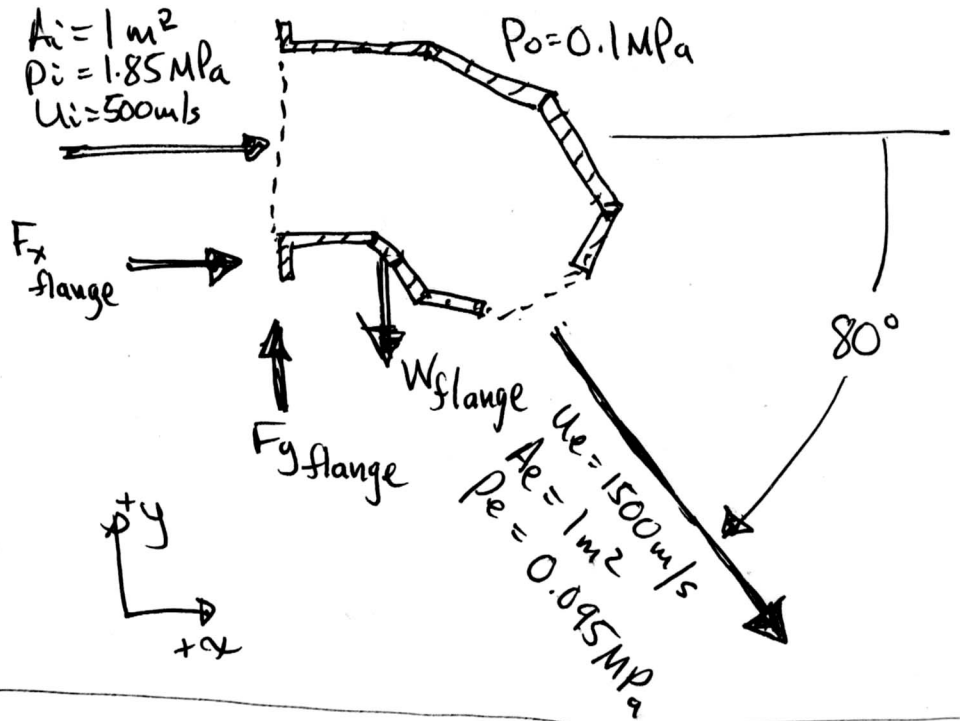 Ai = 1 m²
Pi = 1.85 MPa
Ui = 500 m/s
Po = 0.1 MPa
Fx flange
80°
Wflange
Fy flange
Ue = 1500 m/s
Ae = 1 m²
Pe = 0.095 MPa
+y
+x